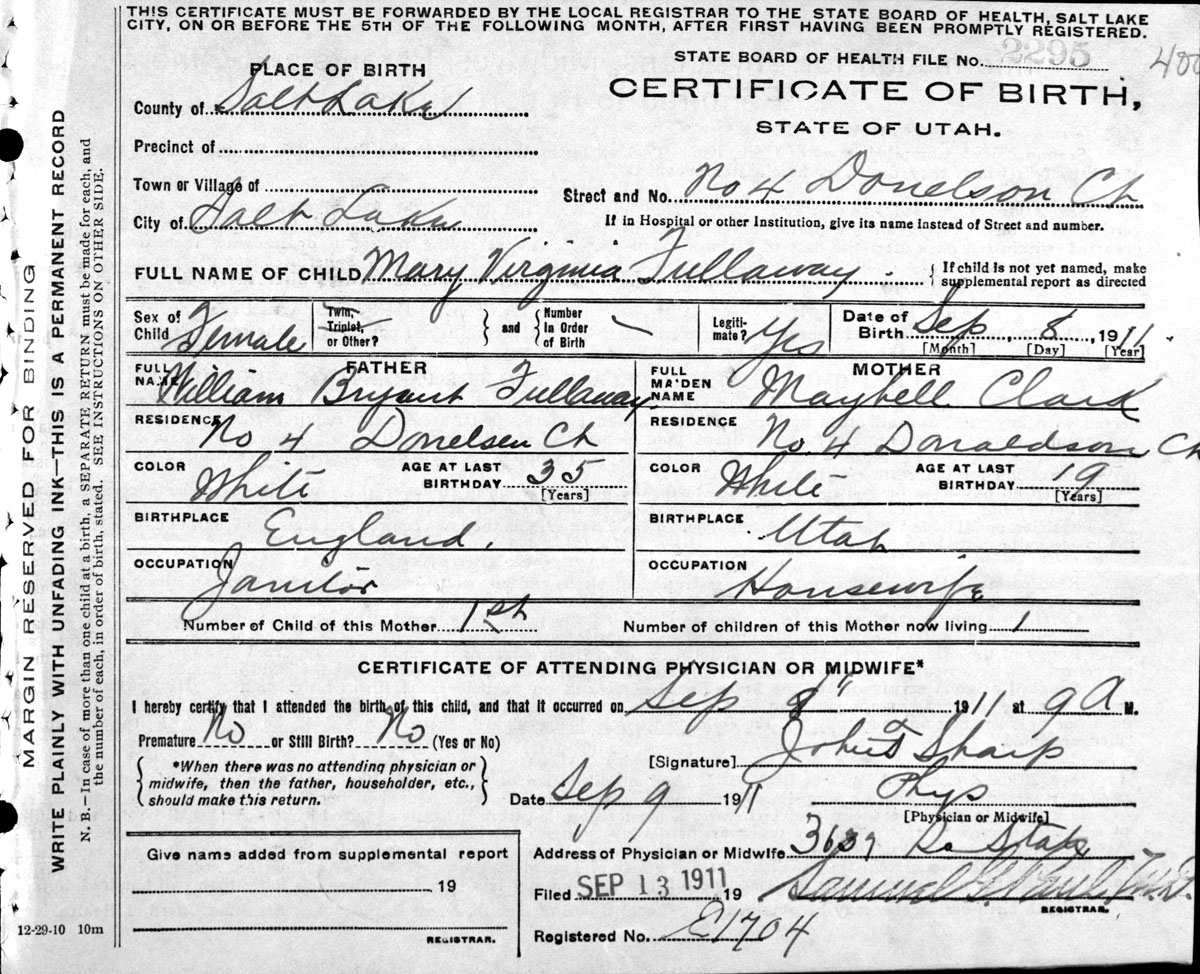 THIS CERTIFICATE MUST BE FORWARDED BY THE LOCAL REGISTRAR TO THE STATE BOARD OF HEALTH, SALT LAKE
CITY, ON OR BEFORE THE 5TH OF THE FOLLOWING MONTH, AFTER FIRST HAVING BEEN PROMPTLY REGISTERED.
STATE BOARD OF HEALTH FILE No. 2295
400
PLACE OF BIRTH
CERTIFICATE OF BIRTH,
STATE OF UTAH.
County of Salt Lake
Precinct of
Town or Village of
Street and No. No 4 Donelson Ct
City of Salt Lake
If in Hospital or other Institution, give its name instead of Street and number.
FULL NAME OF CHILD Mary Virginia Fullaway
{ If child is not yet named, make
supplemental report as directed
Sex of Child Female
Twin, Triplet, or Other?
} and { Number in Order of Birth
Legitimate? Yes
Date of Birth Sep 8, 1911
[Month] [Day] [Year]
FATHER
FULL NAME William Bryant Fullaway
MOTHER
FULL MAIDEN NAME Maybell Clark
RESIDENCE No 4 Donelsen Ct
RESIDENCE No. 4 Donaldson Ct
COLOR White AGE AT LAST BIRTHDAY 35 [Years]
COLOR White AGE AT LAST BIRTHDAY 19 [Years]
BIRTHPLACE England.
BIRTHPLACE Utah
OCCUPATION Janitor
OCCUPATION Housewife
Number of Child of this Mother 1st Number of children of this Mother now living 1
CERTIFICATE OF ATTENDING PHYSICIAN OR MIDWIFE*
I hereby certify that I attended the birth of this child, and that it occurred on Sep 8" 1911 at 9 A M.
Premature No or Still Birth? No (Yes or No)
[Signature] John Sharp
{ *When there was no attending physician or
midwife, then the father, householder, etc.,
should make this return. }
Date Sep 9 1911 Phys
[Physician or Midwife]
Give name added from supplemental report
19
REGISTRAR.
Address of Physician or Midwife 3639 So State
Filed SEP 13 1911 19 Samuel G. M.D.
REGISTRAR.
Registered No. E1704
12-29-10 10m
MARGIN RESERVED FOR BINDING
WRITE PLAINLY WITH UNFADING INK—THIS IS A PERMANENT RECORD
N. B.—In case of more than one child at a birth, a SEPARATE RETURN must be made for each, and
the number of each, in order of birth, stated. SEE INSTRUCTIONS ON OTHER SIDE.